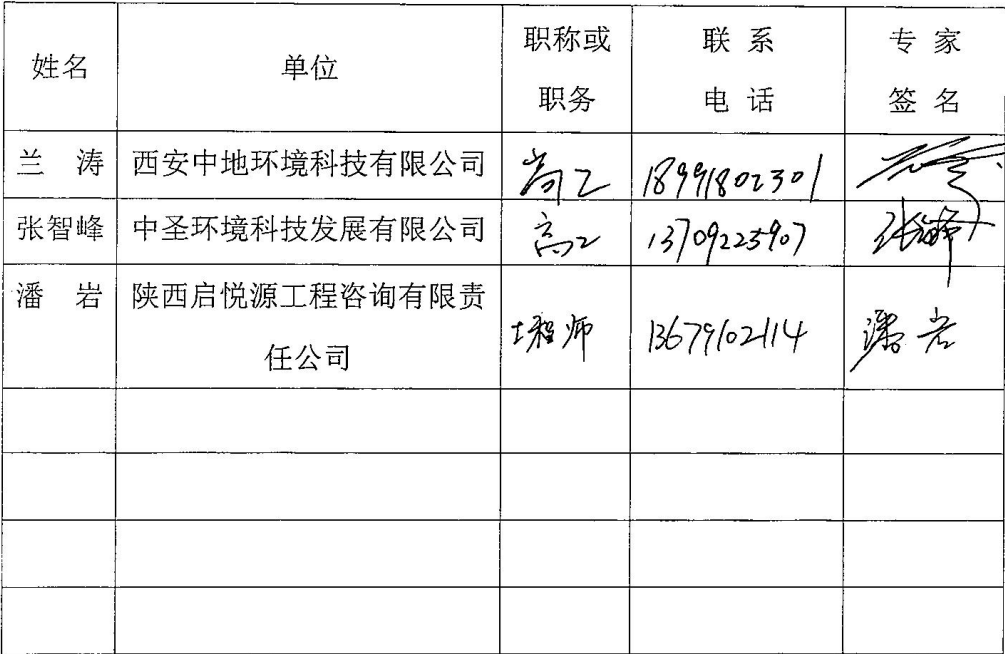 姓名 单位 职称或职务 联系电话 专家签名
兰涛 西安中地环境科技有限公司 高工 18991802301
张智峰 中圣环境科技发展有限公司 高工 13709225907 张智峰
潘岩 陕西启悦源工程咨询有限责任公司 工程师 13679102114 潘岩